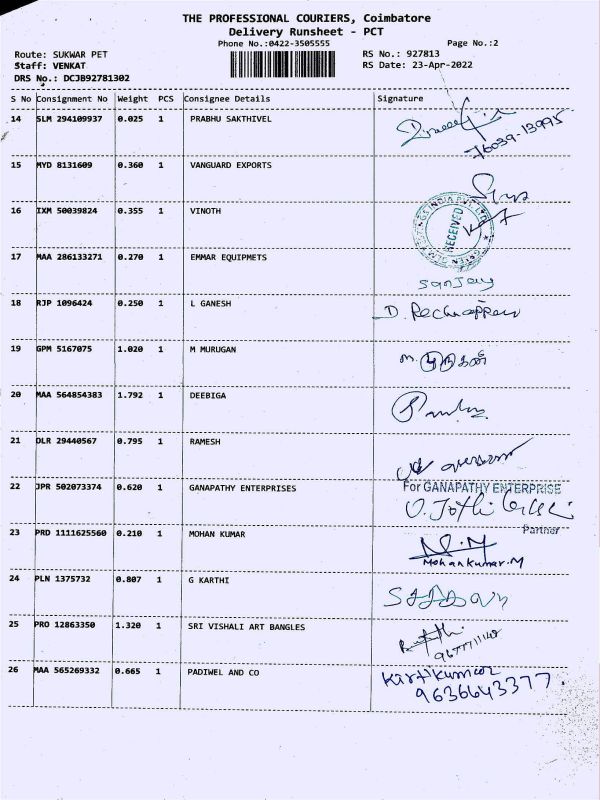 THE PROFESSIONAL COURIERS, Coimbatore
Delivery Runsheet - PCT
Phone No.:0422-3505555 Page No.:2
Route: SUKWAR PET RS No.: 927813
Staff: VENKAT RS Date: 23-Apr-2022
DRS No.: DCJB92781302
S No Consignment No Weight PCS Consignee Details Signature
14 SLM 294109937 0.025 1 PRABHU SAKTHIVEL
76039-13995
15 MYD 8131609 0.360 1 VANGUARD EXPORTS
16 IXM 50039824 0.355 1 VINOTH
RECEIVED
17 MAA 286133271 0.270 1 EMMAR EQUIPMETS
Sanjay
18 RJP 1096424 0.250 1 L GANESH
19 GPM 5167075 1.020 1 M MURUGAN
M. முருகன்
20 MAA 564854383 1.792 1 DEEBIGA
21 DLR 29440567 0.795 1 RAMESH
22 JPR 502073374 0.620 1 GANAPATHY ENTERPRISES
For GANAPATHY ENTERPRISE
Partner
23 PRD 1111625560 0.210 1 MOHAN KUMAR
N.M
Mohankumar.M
24 PLN 1375732 0.807 1 G KARTHI
25 PRO 12863350 1.320 1 SRI VISHALI ART BANGLES
26 MAA 565269332 0.665 1 PADIWEL AND CO
Kirtikumar
9636643377.